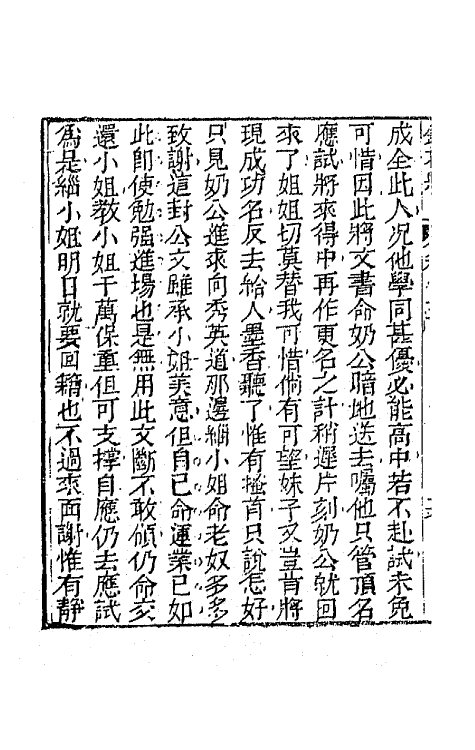 成全此人况他學問甚優必能高中若不赴試未免
可惜因此將文書命奶公暗地送去囑他只管頂名
應試將來得中再作更名之計稍遲片刻奶公就回
來了姐姐切莫替我可惜倘有可望妹子又豈肯將
現成功名反去給人墨香聽了惟有搔首只說怎好
只見奶公進來向秀英道那邊緇小姐命老奴多多
致謝這封公文雖承小姐美意但自己命運業已如
此即使勉强進場也是無用此文斷不敢領仍命交
還小姐教小姐千萬保重但可支撐自應仍去應試
為是緇小姐明日就要回籍也不過來面謝惟有靜